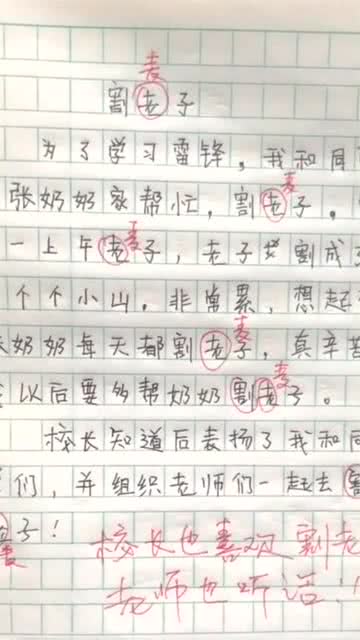 麦
割老子
为了学习雷锋，我和同
麦
张奶奶家帮忙，割老子。
麦
一上午老子，老子割成
个个小山。非常累，想起
麦
奶奶每天都割老子，真辛苦
麦
以后要多帮奶奶割老子。
校长知道后表扬了我和同
们，并组织老师们一起去割
子！
麦
校长也喜欢割老
老师也听话！